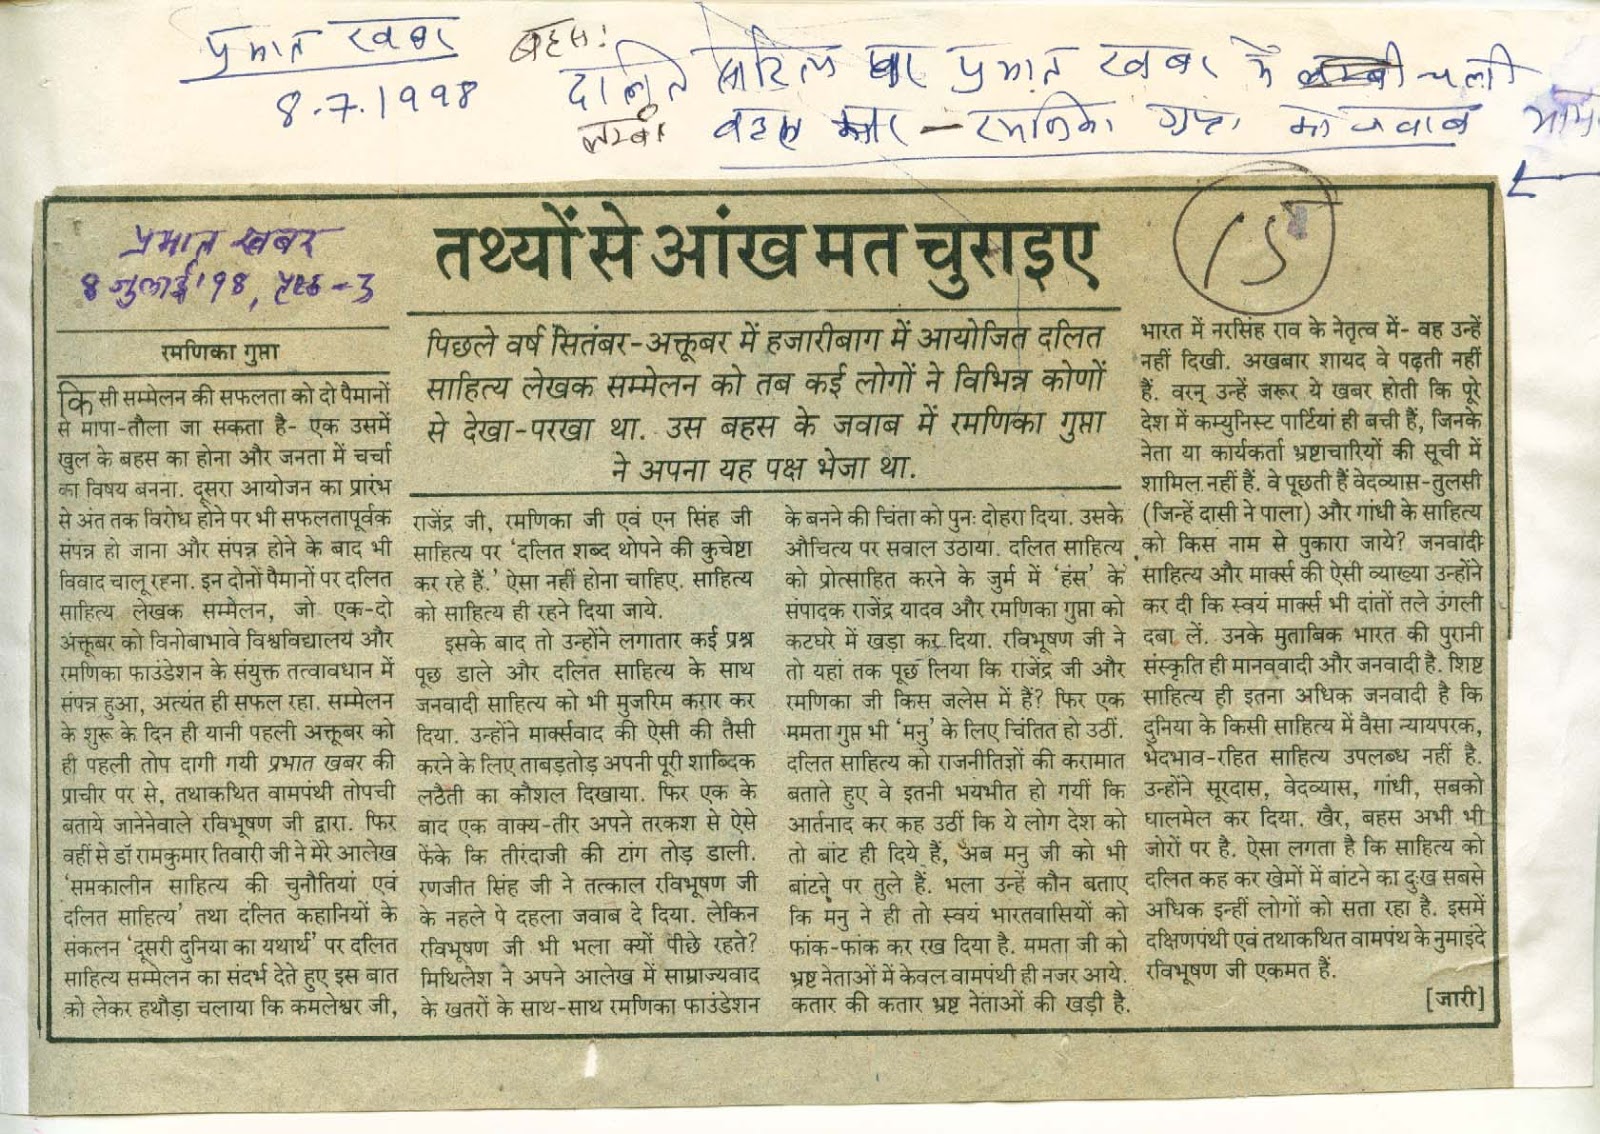 प्रभात खबर
8.7.1998
बहस:
दलित साहित्य पर प्रभात खबर में चली
लम्बी बहस का — रमणिका गुप्ता का जवाब
प्रभात खबर
8 जुलाई '98, पृष्ठ-3
15
तथ्यों से आंख मत चुराइए
पिछले वर्ष सितंबर-अक्तूबर में हजारीबाग में आयोजित दलित
साहित्य लेखक सम्मेलन को तब कई लोगों ने विभिन्न कोणों
से देखा-परखा था. उस बहस के जवाब में रमणिका गुप्ता
ने अपना यह पक्ष भेजा था.
रमणिका गुप्ता
किसी सम्मेलन की सफलता को दो पैमानों
से मापा-तौला जा सकता है- एक उसमें
खुल के बहस का होना और जनता में चर्चा
का विषय बनना. दूसरा आयोजन का प्रारंभ
से अंत तक विरोध होने पर भी सफलतापूर्वक
संपन्न हो जाना और संपन्न होने के बाद भी
विवाद चालू रहना. इन दोनों पैमानों पर दलित
साहित्य लेखक सम्मेलन, जो एक-दो
अक्तूबर को विनोबाभावे विश्वविद्यालय और
रमणिका फाउंडेशन के संयुक्त तत्वावधान में
संपन्न हुआ, अत्यंत ही सफल रहा. सम्मेलन
के शुरू के दिन ही यानी पहली अक्तूबर को
ही पहली तोप दागी गयी प्रभात खबर की
प्राचीर पर से, तथाकथित वामपंथी तोपची
बताये जानेनेवाले रविभूषण जी द्वारा. फिर
वहीं से डॉ रामकुमार तिवारी जी ने मेरे आलेख
'समकालीन साहित्य की चुनौतियां एवं
दलित साहित्य' तथा दलित कहानियों के
संकलन 'दूसरी दुनिया का यथार्थ' पर दलित
साहित्य सम्मेलन का संदर्भ देते हुए इस बात
को लेकर हथौड़ा चलाया कि कमलेश्वर जी,
राजेंद्र जी, रमणिका जी एवं एन सिंह जी
साहित्य पर 'दलित शब्द थोपने की कुचेष्टा
कर रहे हैं.' ऐसा नहीं होना चाहिए. साहित्य
को साहित्य ही रहने दिया जाये.
इसके बाद तो उन्होंने लगातार कई प्रश्न
पूछ डाले और दलित साहित्य के साथ
जनवादी साहित्य को भी मुजरिम करार कर
दिया. उन्होंने मार्क्सवाद की ऐसी की तैसी
करने के लिए ताबड़तोड़ अपनी पूरी शाब्दिक
लठैती का कौशल दिखाया. फिर एक के
बाद एक वाक्य-तीर अपने तरकश से ऐसे
फेंके कि तीरंदाजी की टांग तोड़ डाली.
रणजीत सिंह जी ने तत्काल रविभूषण जी
के नहले पे दहला जवाब दे दिया. लेकिन
रविभूषण जी भी भला क्यों पीछे रहते?
मिथिलेश ने अपने आलेख में साम्राज्यवाद
के खतरों के साथ-साथ रमणिका फाउंडेशन
के बनने की चिंता को पुनः दोहरा दिया. उसके
औचित्य पर सवाल उठाया. दलित साहित्य
को प्रोत्साहित करने के जुर्म में 'हंस' के
संपादक राजेंद्र यादव और रमणिका गुप्ता को
कटघरे में खड़ा कर दिया. रविभूषण जी ने
तो यहां तक पूछ लिया कि राजेंद्र जी और
रमणिका जी किस जलेस में हैं? फिर एक
ममता गुप्त भी 'मनु' के लिए चिंतित हो उठीं.
दलित साहित्य को राजनीतिज्ञों की करामात
बताते हुए वे इतनी भयभीत हो गयीं कि
आर्तनाद कर कह उठीं कि ये लोग देश को
तो बांट ही दिये हैं, अब मनु जी को भी
बांटने पर तुले हैं. भला उन्हें कौन बताए
कि मनु ने ही तो स्वयं भारतवासियों को
फांक-फांक कर रख दिया है. ममता जी को
भ्रष्ट नेताओं में केवल वामपंथी ही नजर आये.
कतार की कतार भ्रष्ट नेताओं की खड़ी है.
भारत में नरसिंह राव के नेतृत्व में- वह उन्हें
नहीं दिखी. अखबार शायद वे पढ़ती नहीं
हैं. वरन् उन्हें जरूर ये खबर होती कि पूरे
देश में कम्युनिस्ट पार्टियां ही बची हैं, जिनके
नेता या कार्यकर्ता भ्रष्टाचारियों की सूची में
शामिल नहीं हैं. वे पूछती हैं वेदव्यास-तुलसी
(जिन्हें दासी ने पाला) और गांधी के साहित्य
को किस नाम से पुकारा जाये? जनवादी
साहित्य और मार्क्स की ऐसी व्याख्या उन्होंने
कर दी कि स्वयं मार्क्स भी दांतों तले उंगली
दबा लें. उनके मुताबिक भारत की पुरानी
संस्कृति ही मानववादी और जनवादी है. शिष्ट
साहित्य ही इतना अधिक जनवादी है कि
दुनिया के किसी साहित्य में वैसा न्यायपरक,
भेदभाव-रहित साहित्य उपलब्ध नहीं है.
उन्होंने सूरदास, वेदव्यास, गांधी, सबको
घालमेल कर दिया. खैर, बहस अभी भी
जोरों पर है. ऐसा लगता है कि साहित्य को
दलित कह कर खेमों में बांटने का दुःख सबसे
अधिक इन्हीं लोगों को सता रहा है. इसमें
दक्षिणपंथी एवं तथाकथित वामपंथ के नुमाइंदे
रविभूषण जी एकमत हैं.
[जारी]